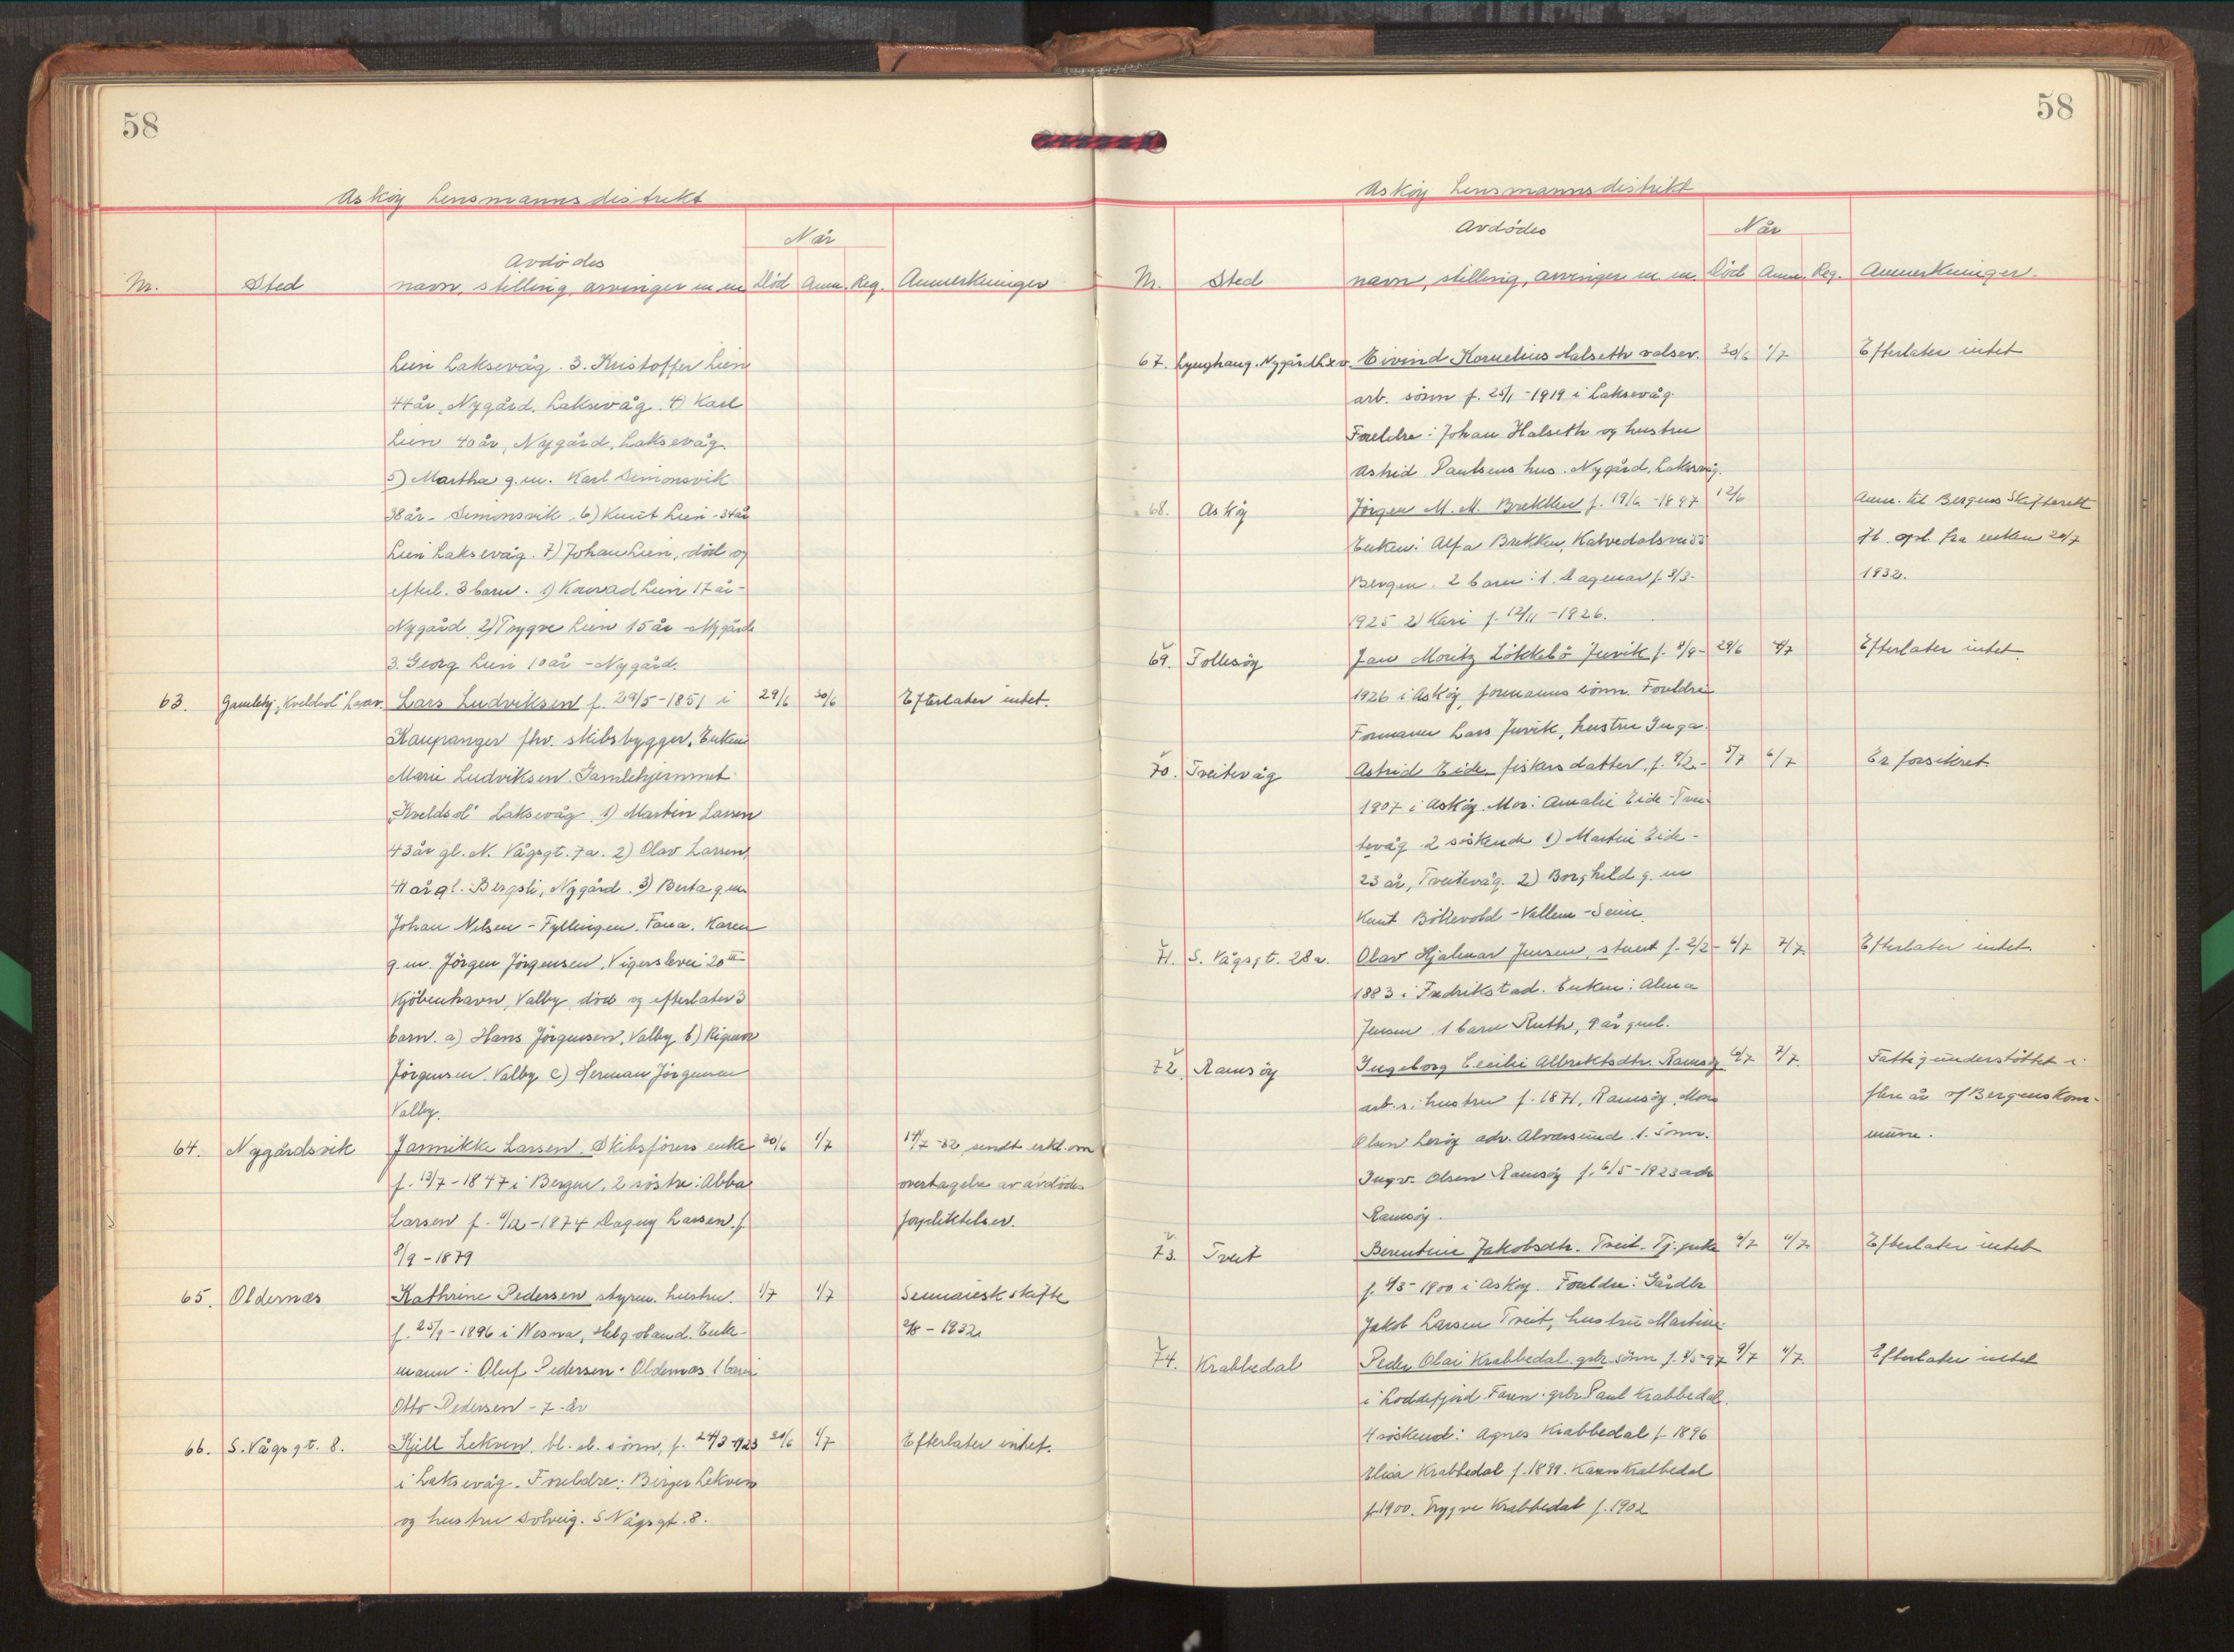 58
Asköy Lensmannsdistrikt
Når
Avdödes
Nr. Sted navn, stilling, arvinger m m Död Anm. Reg. Anmerkninger
Lien Laksevåg. 3. Kristoffer Lien
44 år, Nygård, Laksevåg. 4) Karl
Lien 40 år, Nygård, Laksevåg.
5) Martha g.m. Karl Simonsvik
38 år - Simonsvik 6) Knut Lien - 34 år
Lien Laksevåg. 7) Johan Lien, död og
efterl. 3 barn. 1) Konrad Lien 17 år -
Nygård 2) Trygve Lien 15 år - Nygård
3. Georg Lien 10 år - Nygård.
63. Gamlehj. "Kveldsol" Laxev. Lars Ludviksen f. 29/5 - 1851 i 29/6 30/6 Efterlater intet.
Kaupanger fhv. skibsbygger. Enken:
Marie Ludviksen. Gamlehjemmet
"Kveldsol" Laksevåg. 1) Martin Larsen
43 år gl. N. Vågsgt. 7a. 2) Olav Larsen,
41 år gl. Bergsli, Nygård. 3) Berta g.m.
Johan Nelsen - Fyllingen. Fana. Karen
g.m. Jörgen Jörgensen, Vigerslevei 20 III
Kjöbenhavn, Valby, död og efterlater 3
barn. a) Hans Jörgensen, Valby b) Rigmor
Jörgensen. Valby c) Herman Jörgensen
Valby.
64. Nygårdsvik Jannikke Larsen. Skibsförers enke 30/6 1/7 14/7 - 32 sendt erkl. om
f. 13/7 - 1847 i Bergen. 2 söstre: Abba overtagelse av avdödes
Larsen f. 4/12 - 1874 Dagny Larsen f. forpliktelser.
8/9 - 1879
65. Oldernæs Kathrine Pedersen styrm. hustru. 1/7 1/7 Summarisk skifte
f. 25/9 - 1896 i Nesna, Helgoland. Enke- 2/8 - 1932
mann: Oluf Pedersen. Oldernæs 1 barn
Otto Pedersen - 7 år
66. S. Vågsgt. 8. Kjell Lekven bl. arb. sönn, f. 24/3 - 1923 30/6 1/7 Efterlater intet.
i Laksevåg. Foreldre: Birger Lekven
og hustru Solveig. S Vågsgt. 8.
58
Asköy Lensmannsdistrikt
Avdödes Når
Nr. Sted navn, stilling, arvinger m m. Död Anm. Reg. Anmerkninger.
67. Lynghaug. Nygård Lxv. Eivind Kornelius Halseth valsev. 30/6 1/7 Efterlater intet
arb. sönn f. 25/1 - 1919 i Laksevåg.
Foreldre: Johan Halseth og hustru
Astrid. Paulsens hus. Nygård. Laksevåg.
68. Asköy Jörgen M. M. Brekken f. 19/6 - 1897 12/6 Anm. til Bergens Skifterett
Enken: Alfa Brekken, Kalvedalsvei 55 flt. opl. fra enken 20/7
Bergen. 2 barn: 1. Dagmar f. 8/3 - 1932.
1925 2) Kari f. 12/11 - 1926.
69. Follesöy Jan Moritz Lökkebö Juvik f. 8/9 - 29/6 4/7 Efterlater intet.
1926 i Asköy, formanns sönn. Foreldre
Formann Lars Juvik, hustru Inga.
70. Treitevåg Astrid Eide fiskers datter, f. 9/2 - 5/7 6/7 Er forsikret.
1907 i Asköy. Mor: Amalie Eide - Trei-
tevåg 2 söskende 1) Martin Eide -
23 år, Treitevåg. 2) Borghild g. m
Knut Bökevold - Vallem - Seim.
71. S. Vågsgt. 28a. Olav Hjalmar Jensen, stuert f. 2/2 - 6/7 7/7 Efterlater intet.
1883 i Fredrikstad. Enken: Alma
Jensen 1 barn Ruth, 9 år gml.
72. Ramsöy Ingeborg Cecilie Albrektsdtr. Ramsöy 6/7 7/7. Fattigunderstöttet i
arb. s. hustru f. 1871, Ramsöy, Mons flere år af Bergens kom-
Olsen Leröy adr. Alversund 1. Sönn: mune.
Ingv. Olsen Ramsöy f. 6/5 - 1923 adr
Ramsöy.
73. Tveit Berentine Jakobsdtr. Tveit. Tj. pike 9/7 11/7. Efterlater intet
f. 4/3 - 1900 i Asköy. Foreldre: Gårdbr
Jakob Larsen Tveit, hustru Martine.
74. Krabbedal Peder Olai Krabbedal. gbr. sönn f. 4/5 - 97 9/7 11/7. Efterlater intet
i Loddefjord. Faren: gbr. Paul Krabbedal.
4 söskend: Agnes Krabbedal f. 1896
Elisa Krabbedal f. 1899. Karen Krabbedal
f. 1900. Trygve Krabbedal f. 1902